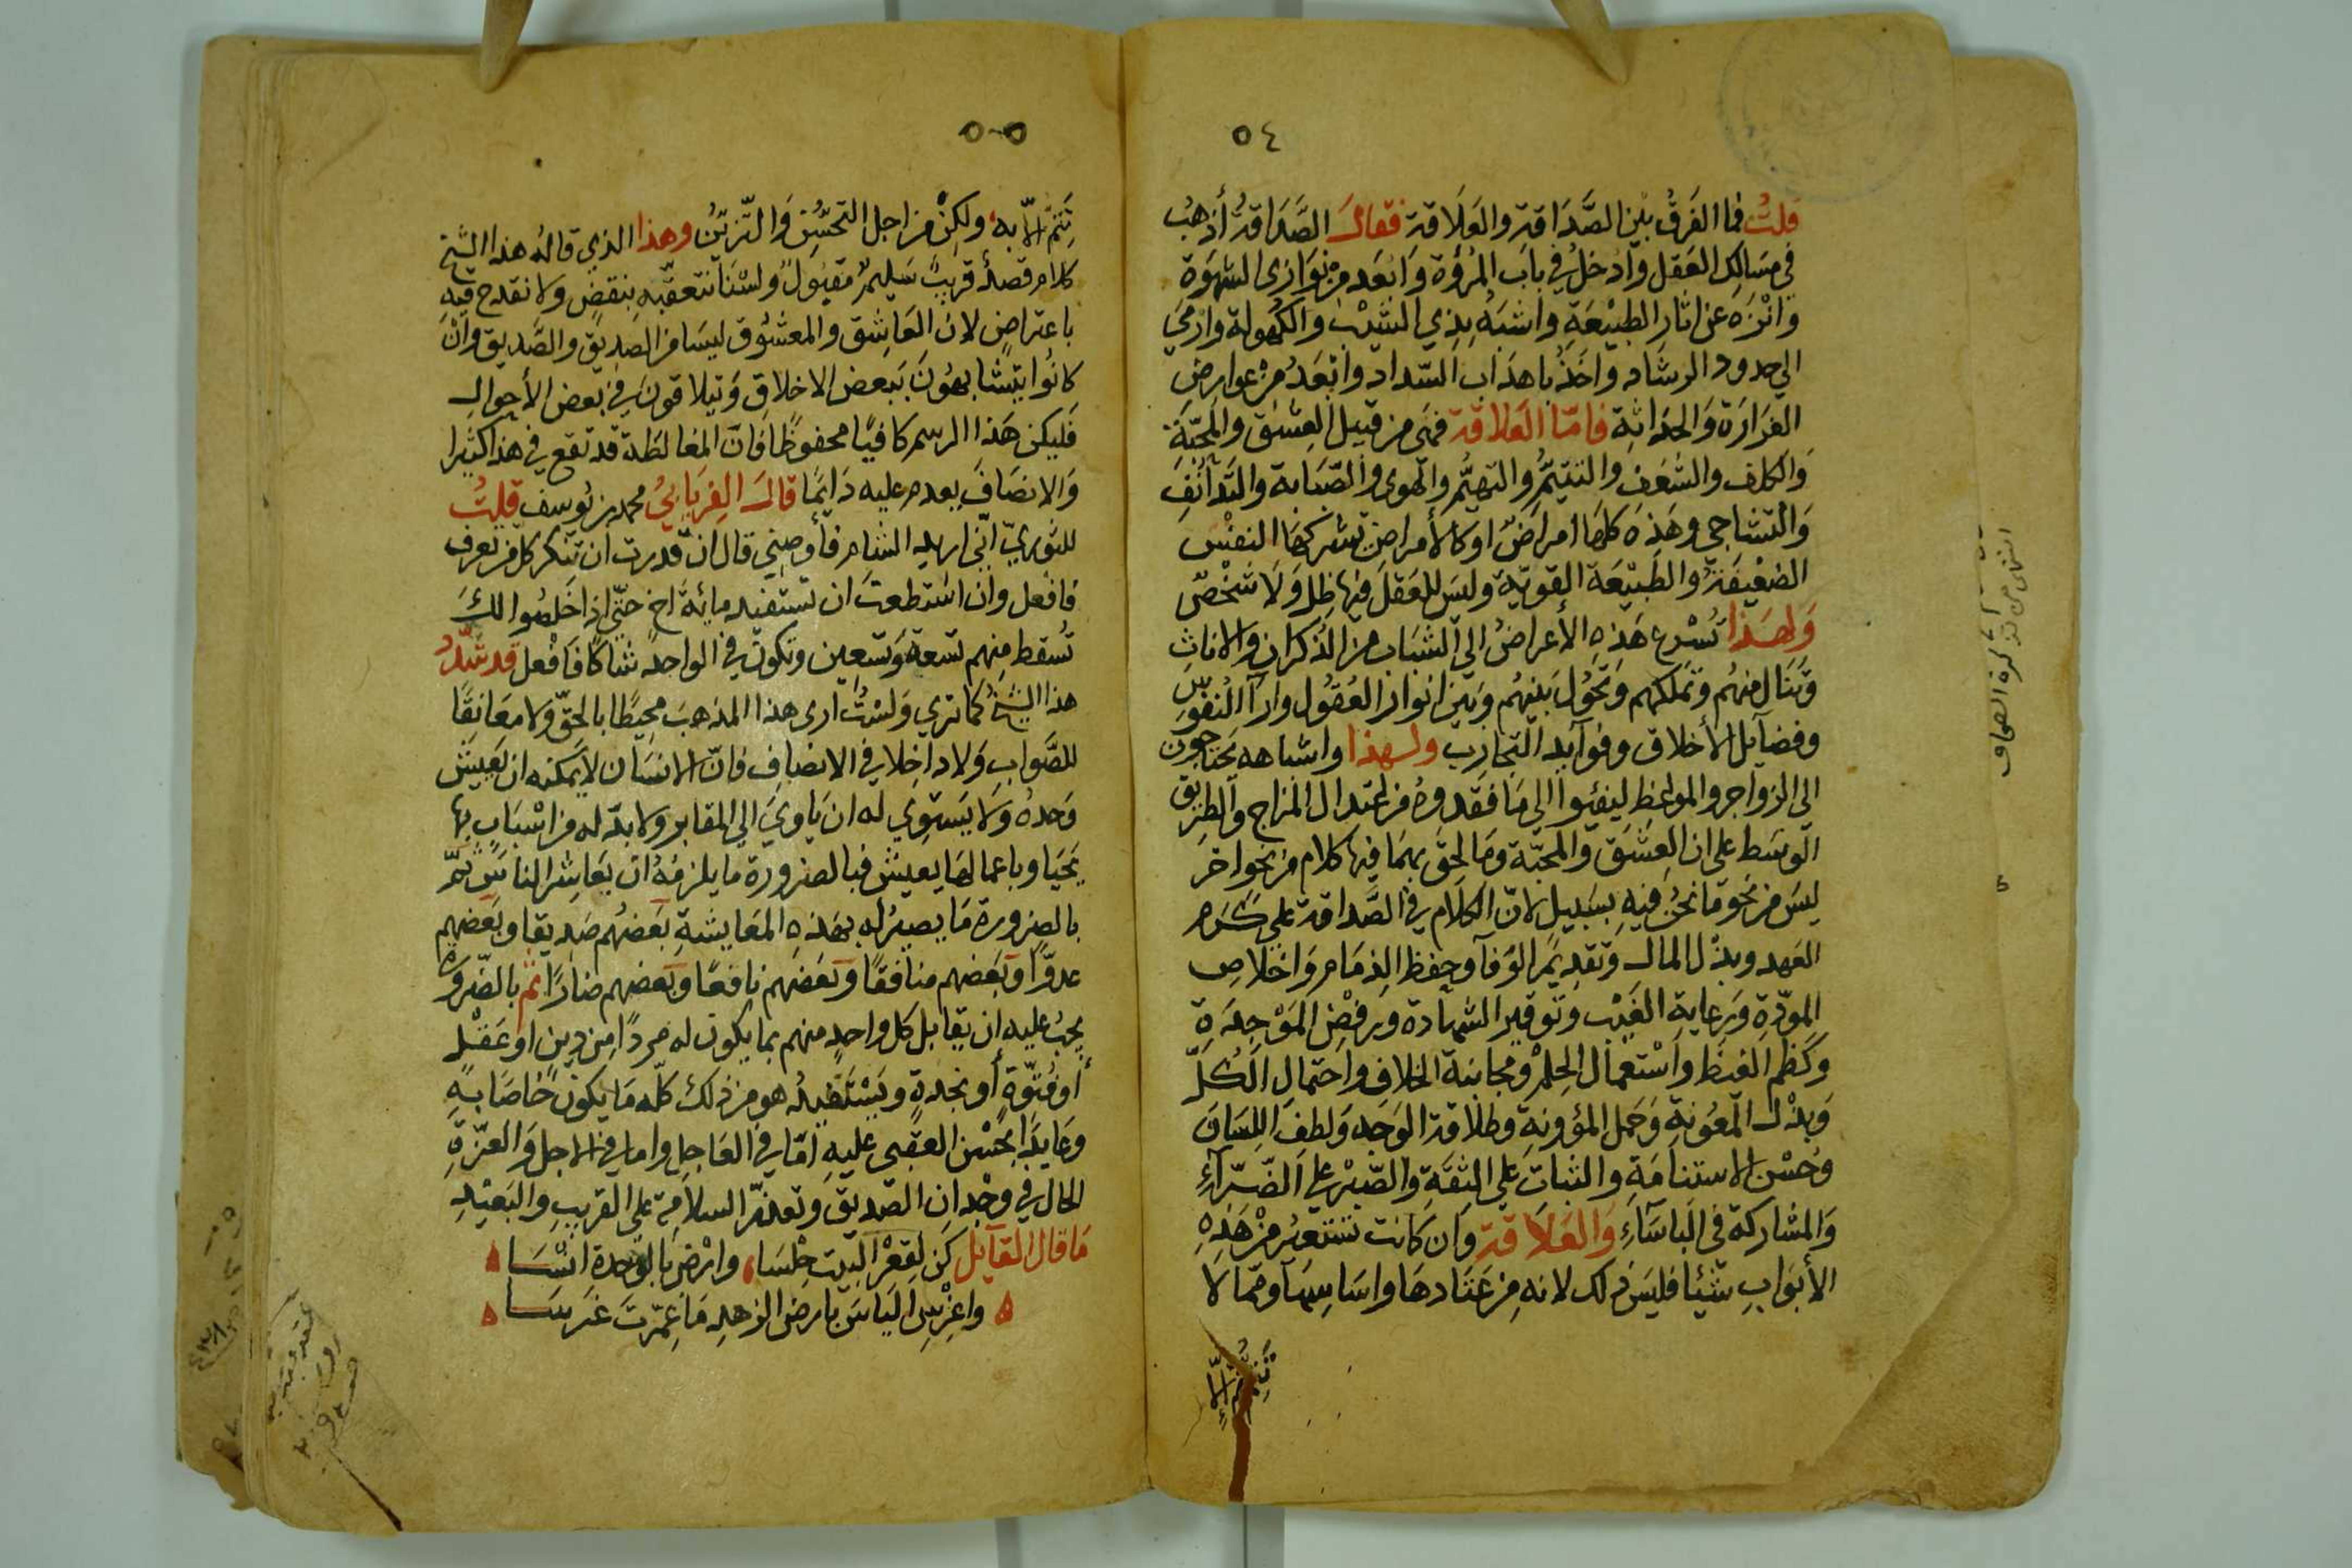 ٥٤
قلتُ فما الفَرقُ بَيْن الصَّدَاقةِ والعَلَاقة فقالَ الصَّدَاقة أذهبُ
في مسَالِك العَقل وَادخلُ في بابِ المُرؤة وَابعَد مِنْ نَوَازي الشهوَة
وانْزَه عن اثار الطبيْعَةِ واشبَهُ بِذي الشيْب والكهُولة وارمَي
الي حدود الرشاد واخَذُ باهدَاب السّداد وابْعَدُ مِنْ عوارض
الغرَارَة وَالحدَاثةِ فامّا العَلاقة فهَي من قبيل العِشق والمحبّة
وَالكلف والشعَف والتتيّم والتهيّم والهوى والصّبَابة والتدَانُف
وَالتشاجي وهَذِه كلهَا امراضٌ او كالأمراض تشركهَا النفْس
الضعِيفَةُ والطبيْعَة القويّة وليس للعَقل فيها ظل وَلَا شخصٌ
وَلهَذا تُسْرع هَذهِ الأعراضُ الي الشبَاب من الذكران والاناثِ
وَتنَال منهُم وتملكهم وَتحُولُ بَينهُم وَبَين انوار العُقول وارآ النفوُس
وفضآيل الأخلاق وفوآيد التجارب ولهذا واشباهه يَحتاجون
الي الزواجر والمواعِظ ليفئوا الي مَا فقدوهُ من اعتدال المزاج والطرِيق
الوسَط علي ان العِشق والمحبّة ومَا لحِقَ بهمَا فيها كلام من نحو اخر
ليسَ من نحو ما نحنُ فيهِ بسَبيل لانّ الكلام في الصَّداقة علي كرَم
العَهد وبذْل المال وَتقدِيْم الوَفآ وحِفظ الذمَام وَاخلاصِ
المودّةِ وَرعاية الغَيْب وتوقير الشهادة ورفضِ المَوْجِدَةِ
وكظم الغيَظ واسْتعمال الحِلم ومجانبة الخلاف واحتمالِ الكلّ
وَبذْل المعُونةِ وَحمل المؤونةِ وطلاقة الوَجه وَلطفِ اللسَان
وحُسْن الاستنامَةِ والثبات علي الثقَةِ والصّبْر علي الضّرّآءِ
وَالمشاركة في البَاسَآءِ وَالعَلَاقة وَان كانت تستعيْر مِنْ هَذِهِ
الأبوَابِ شيْئا فليسَ ذلك لانه مِن عَتَادهَا واسَاسِهَا وممّا لَا
تَتِمُّ إلاّ
٥٥
تَتِمّ إلاّ به، ولكِنْ من اجل التحسُّنِ وَالتّزيّن وهذا الذي قاله هذا الشيخ
كلام قصدُه قريبٌ سَليمٌ مقبُولٌ ولسْنَا نتعقّبه بنقضٍ ولا نقدح فيه
باعتراضٍ لانّ العَاشِق والمعشُوق ليسَا من الصدِيق والصَّديق وانْ
كانُوا يتشابهُونَ ببعض الاخلاق وَيتلاقونَ في بَعض الأحوالِ
فليكن هَذا الرسم كافيًا محفوظًا فانّ المغالطَة قد تقع في هذا كثيرا
وَالانصَافَ يعدم عليه دَايمًا قالَ الفِريَابيُ محمد بن يُوسف قلتُ
للثوريّ انّي اريد الشام فأوصِني قال ان قدرت ان تنكر كل من تعرف
فافعل وان استطعتَ ان تستفيد مائة اخ حتّي اذا خَلصُوا لكَ
تُسقط منهم تسعَة وَتسعِين وتكونَ في الواحد شاكًا فَافعل قد شدّدُ
هذا الشيخُ كما تري وَلسْتُ ارى هذا المذهبَ محِيطًا بالحقّ وَلا معَانقًا
للصَّواب وَلا داخلا في الانصاف فانّ الانسَان لا يمكنه ان يَعيش
وَحدهُ وَلا يَستوي له ان يَاويَ الي المقابر ولا بدّ له من اسْبَابٍ بها
يَحيَا وباعمالها يعيش فبالضرورة ما يلزمُهُ ان يعَاشر الناسَ ثمّ
بالضرورة مَا يصيرُ له بهَذهِ المعَايشةِ بَعضهُم صَدِيقا وبَعضهم
عدوًّا وبَعضهم منافقًا وبَعضهم نافعًا وبَعضهم ضارًا ثم بالضّرورة
يجبُ عليه ان يقابل كل واحدٍ منهم بما يكون له مردًا مِن دينٍ او عَقْل
أو فتوّةٍ أو نجدةٍ ويَسْتفيدُ هو من ذلك كلّه مَا يكون خَاصَا بهِ
وعَايدًا بحُسْن العقبي عليهِ امّا في العَاجل واما في الاجل وَالعزّةِ
الحال في وجْدان الصّديق وتعذّر السلامة علي القريبِ والبَعيْدِ
مَا قال القآيل كُن لِقعْر البَيت حِلسَا، وارْض بالوحدة انْسَا
واغرِس اليَاسَ بارض الزهدِ مَا عمّرتَ غرَسَا